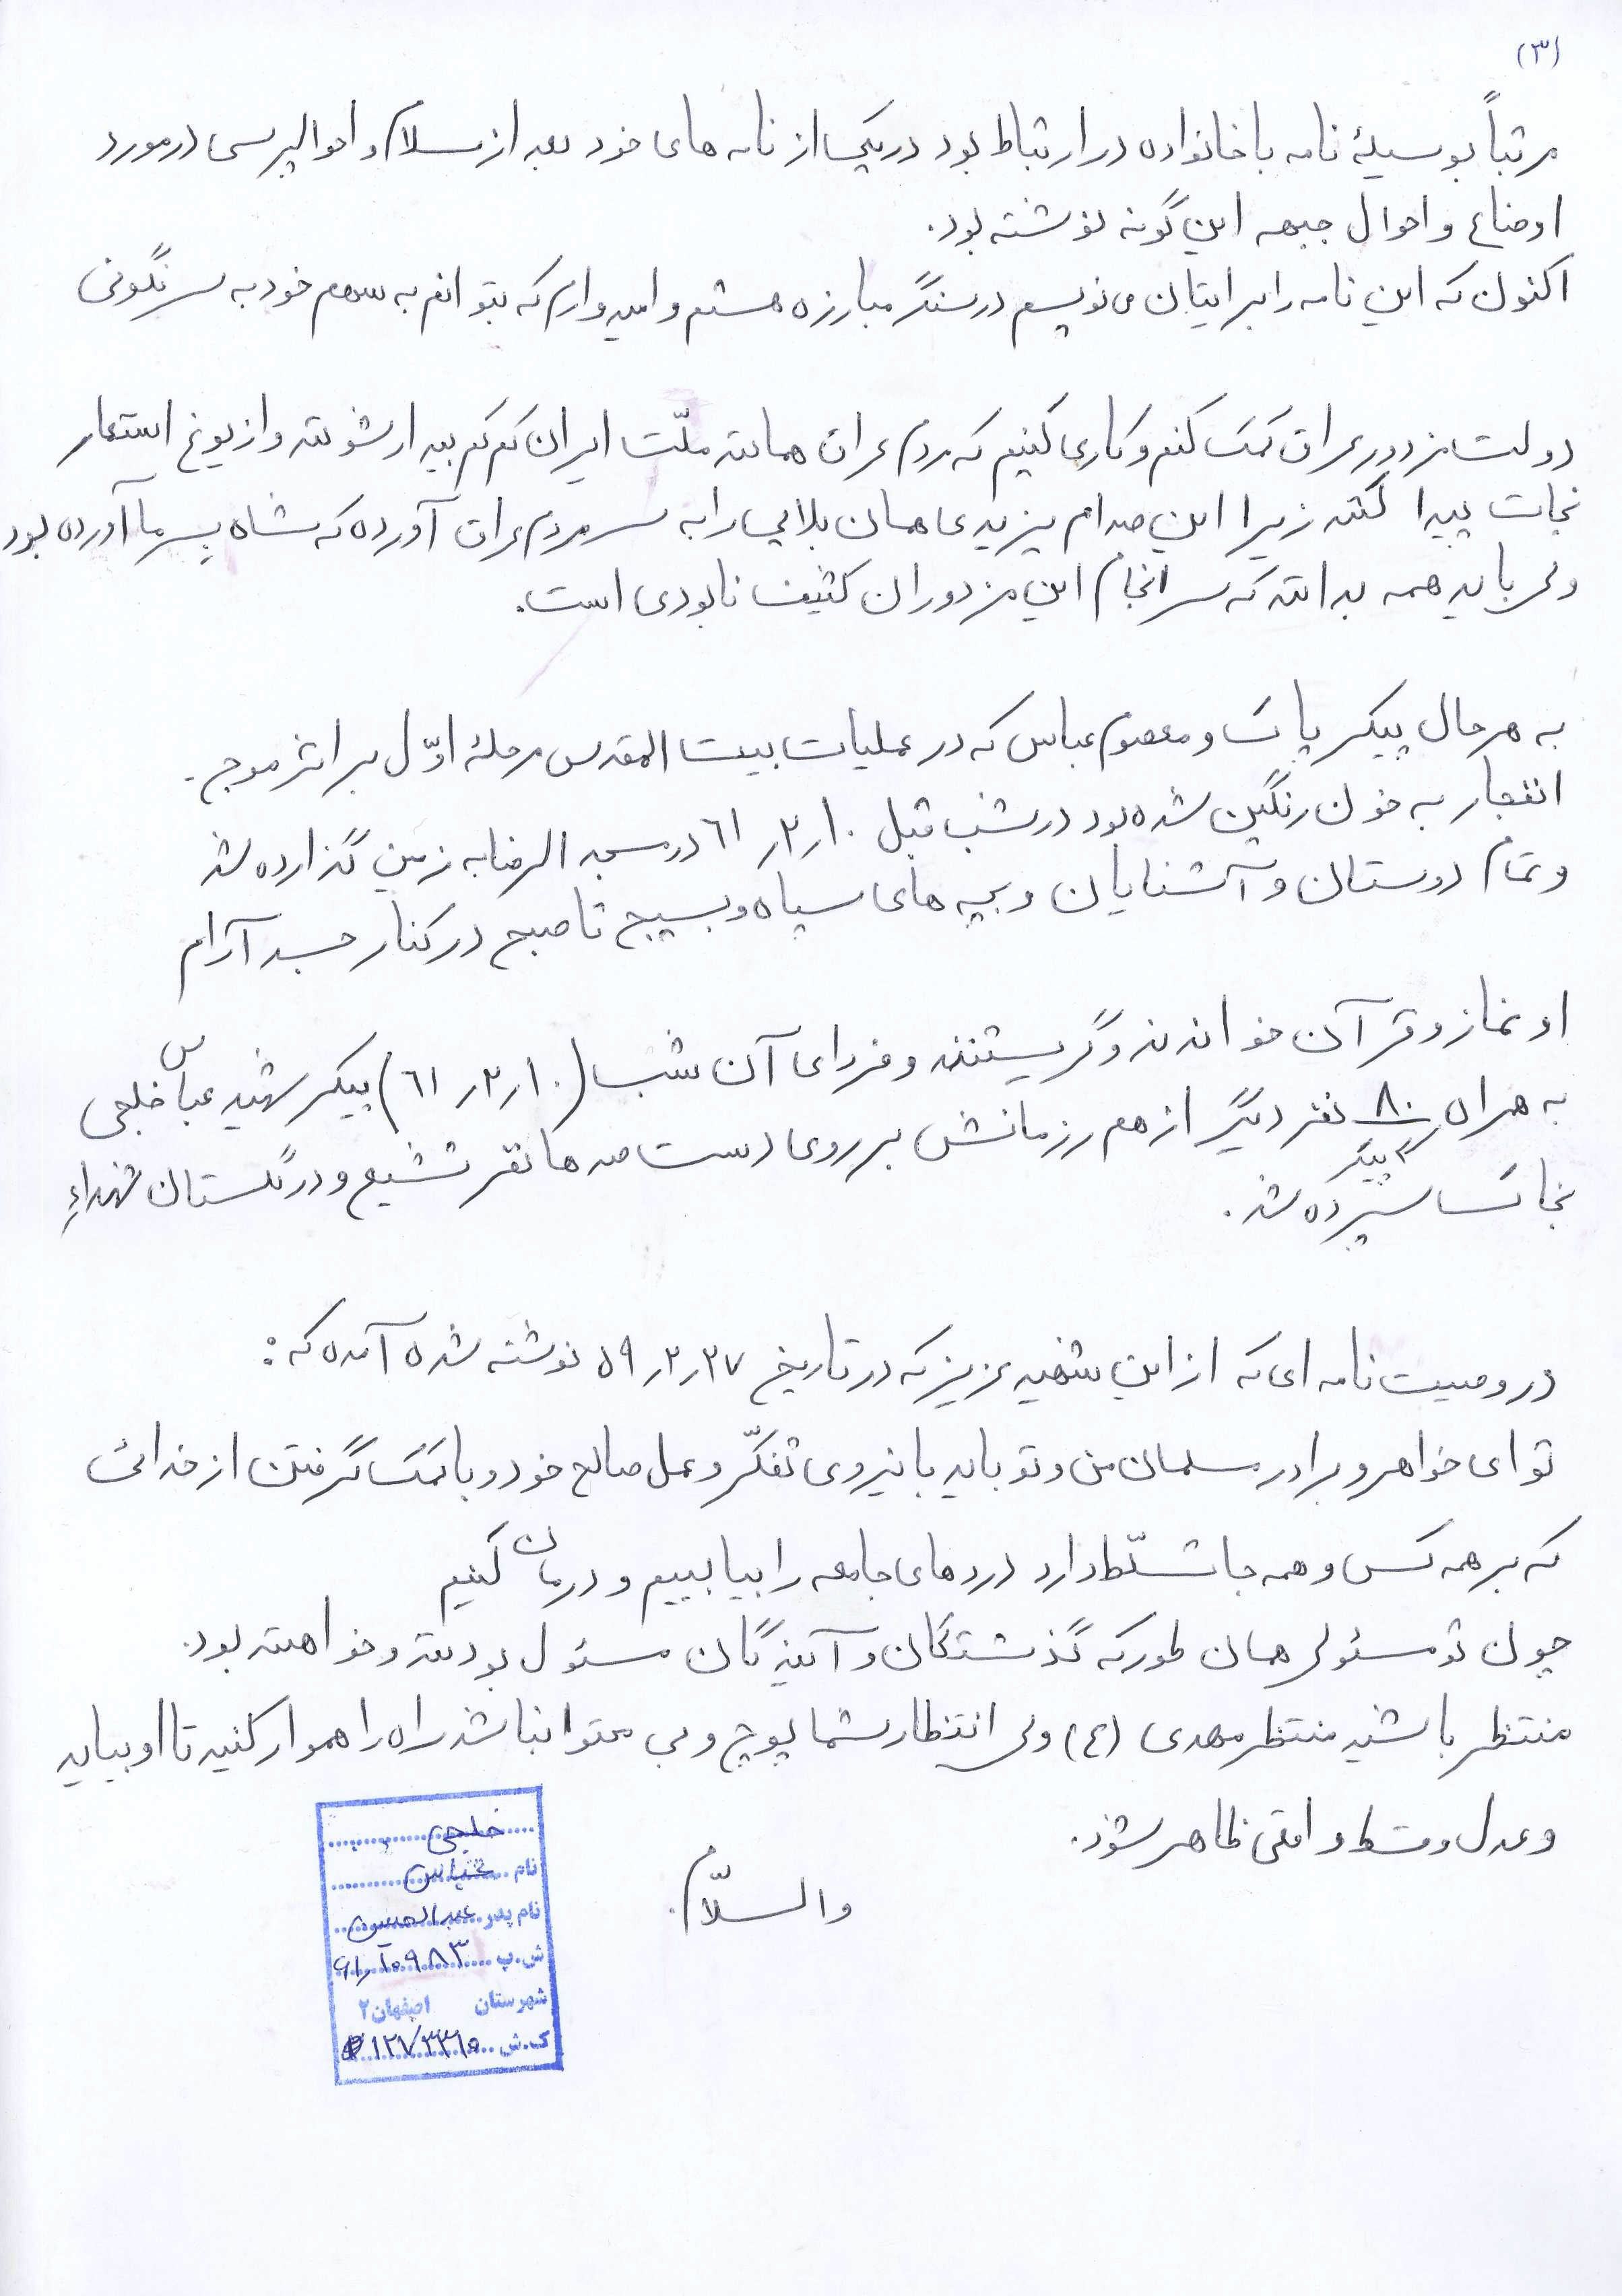 (۳)
مرتباً بوسیلهٔ نامه با خانواده در ارتباط بود در یکی از نامه های خود بعد از سلام و احوالپرسی در مورد
اوضاع و احوال جبهه این گونه نوشته بود.
اکنون که این نامه را برایتان می نویسم در سنگر مبارزه هستم و امیدوارم که بتوانم به سهم خود به سرنگونی
دولت مزدور عراق کمک کنم و کاری کنیم که مردم عراق همانند ملّت ایران کم کم بیدار شوند و از یوغ استعمار
نجات پیدا کنند زیرا این صدام یزیدی همان بلایی را به سر مردم عراق آورده که شاه بسر ما آورده بود
ولی باید همه بدانند که سرانجام این مزدوران کثیف نابودی است.
به هر حال پیکر پاک و معصوم عباس که در عملیات بیت المقدس مرحلهٔ اوّل بر اثر موج
انفجار به خون رنگین شده بود در شب قبل ۶۱٫۲٫۱۰ در مسجد الرضا به زمین گذارده شد
و تمام دوستان و آشنایان و بچه های سپاه و بسیج تا صبح در کنار جسد آرام
او نماز و قرآن خواندند و گریستند و فردای آن شب (۶۱٫۲٫۱۰) پیکر شهید عباس خلجی
به همراه ۸۰ پیکر نفر دیگر از هم رزمانش بر روی دست صدها نفر تشییع و در گلستان شهداءِ
بخاک سپرده شد.
در وصیت نامه ای که از این شهید عزیز که در تاریخ ۵۹٫۲٫۲۷ نوشته شده آمده که:
تو ای خواهر و برادر مسلمان من و تو باید با نیروی تفکّر و عمل صالح خود و با کمک گرفتن از خدائی
که بر همه کس و همه جا تسلّط دارد دردهای جامعه را بیابییم و درمان کنیم
چون تو مسئولی همان طور که گذشتگان و آیندگان مسئول بودند و خواهند بود.
منتظر باشید منتظر مهدی (ع) ولی انتظار شما پوچ و بی محتوا نباشد راه را هموار کنید تا او بیاید
و عدل و قسط واقعی ظاهر شود.
والسلّام.
خلجی
نام عباس
نام پدر عبدالحسین
ش.پ ۶۱٫۲۰۹۸۳
شهرستان اصفهان ۲
ک.ش ۱۲۷۳۳۶۵